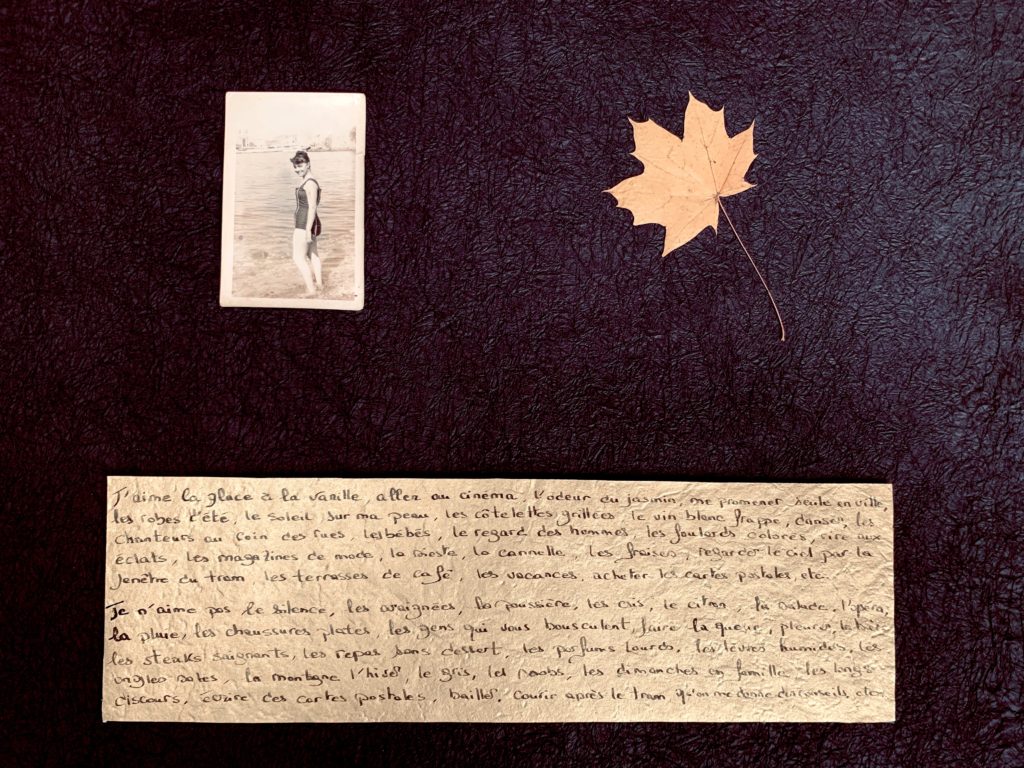 J'aime la glace à la vanille, aller au cinéma, l'odeur du jasmin, me promener seule en ville,
les robes l'été, le soleil sur ma peau, les côtelettes grillées, le vin blanc frappé, danser, les
chanteurs au coin des rues, les bébés, le regard des hommes, les foulards colorés, rire aux
éclats, les magazines de mode, la sieste, la cannelle, les fraises, regarder le ciel par la
fenêtre du tram, les terrasses de café, les vacances, acheter les cartes postales, etc.
Je n'aime pas le silence, les araignées, la poussière, les cris, le citron, la salade, l'opéra,
la pluie, les chaussures plates, les gens qui vous bousculent, faire la queue, pleurer,
les steaks saignants, les repas sans dessert, les parfums lourds, les lèvres humides, les
ongles sales, la montagne l'hiver, le gris, les dimanches en famille, les longs
discours, écrire des cartes postales, bailler, courir après le tram, qu'on me donne des conseils, etc.